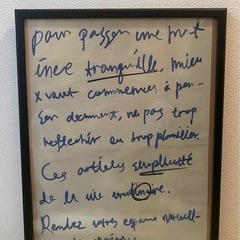 pour passer une nuit
tranquille, mieu
x vaut commencer à pen-
ser document, ne pas trop
reflechir ou trop planifier.
Ces articles simplicité
de la vie
Rendez votre espace